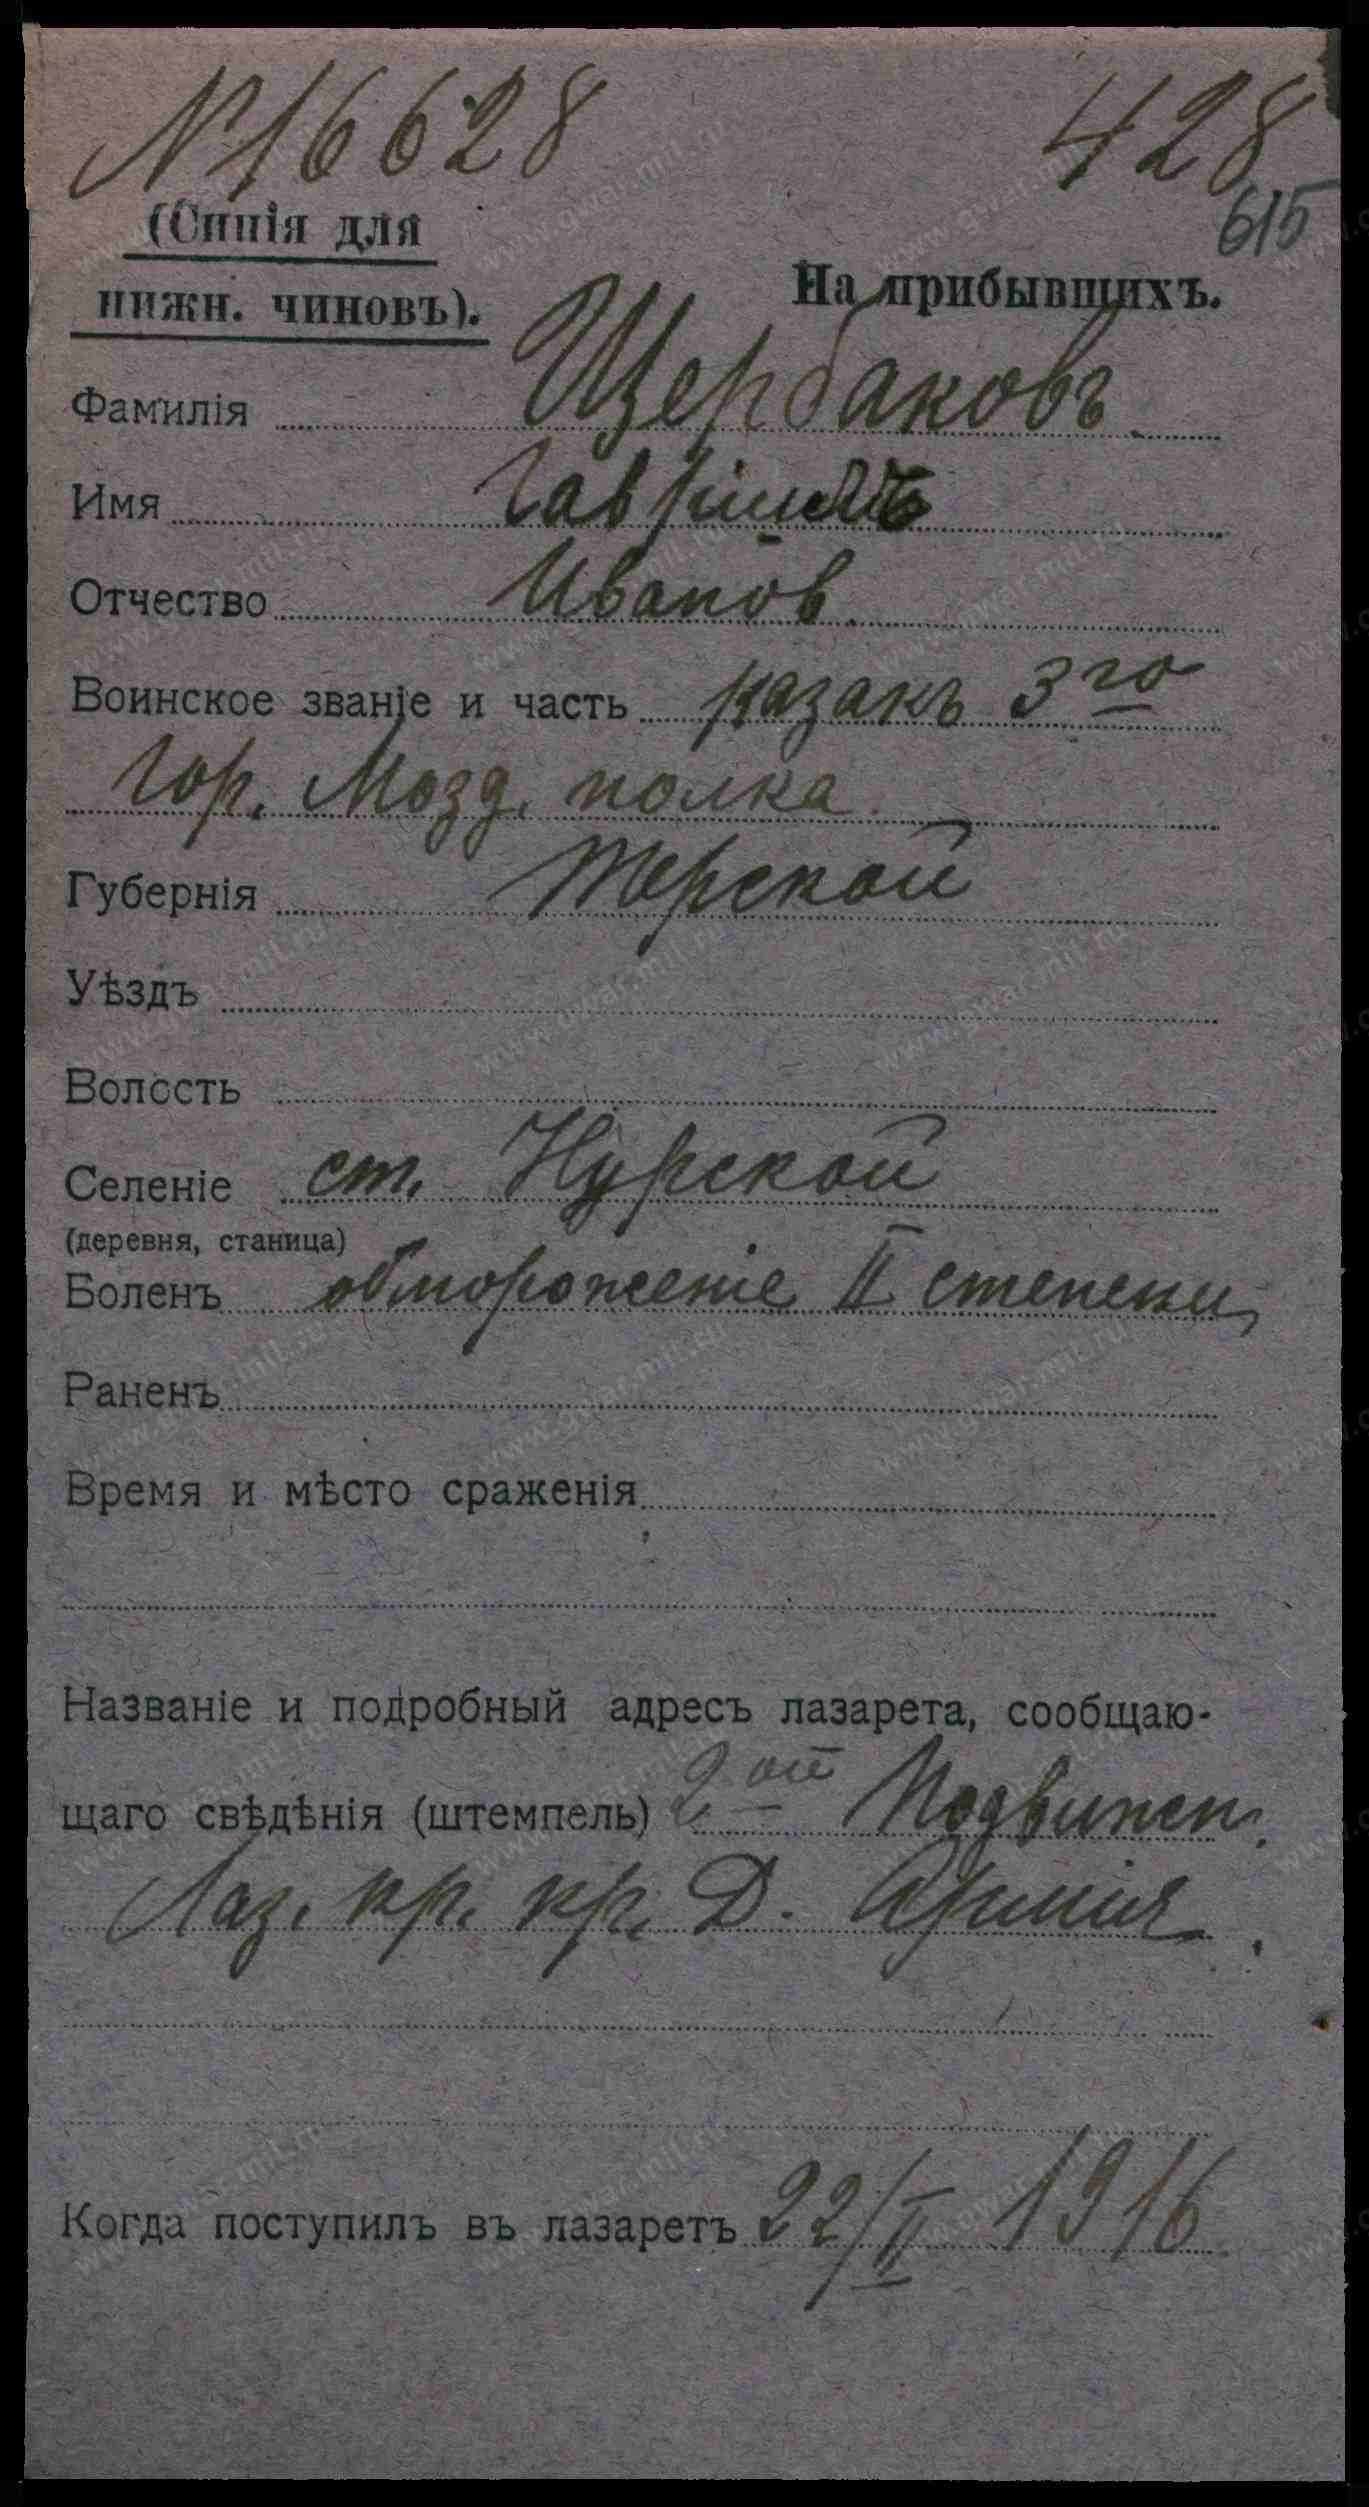 № 16628 428
615
(Синія для
нижн. чиновъ).
На прибывшихъ.
Фамилія Щербаковъ.
Имя Гавріилъ
Отчество Иванов.
Воинское званіе и часть казакъ 3го
Гор. Мозд. полка.
Губернія Терской
Уѣздъ
Волость
Селеніе ст. Курской
(деревня, станица)
Боленъ обмороженіе II степени
Раненъ
Время и мѣсто сраженія
Названіе и подробный адресъ лазарета, сообщаю-
щаго свѣдѣнія (штемпель) 2ой Подвижн.
Лаз. кр. кр. Д. Армія.
Когда поступилъ въ лазаретъ 22/II 1916